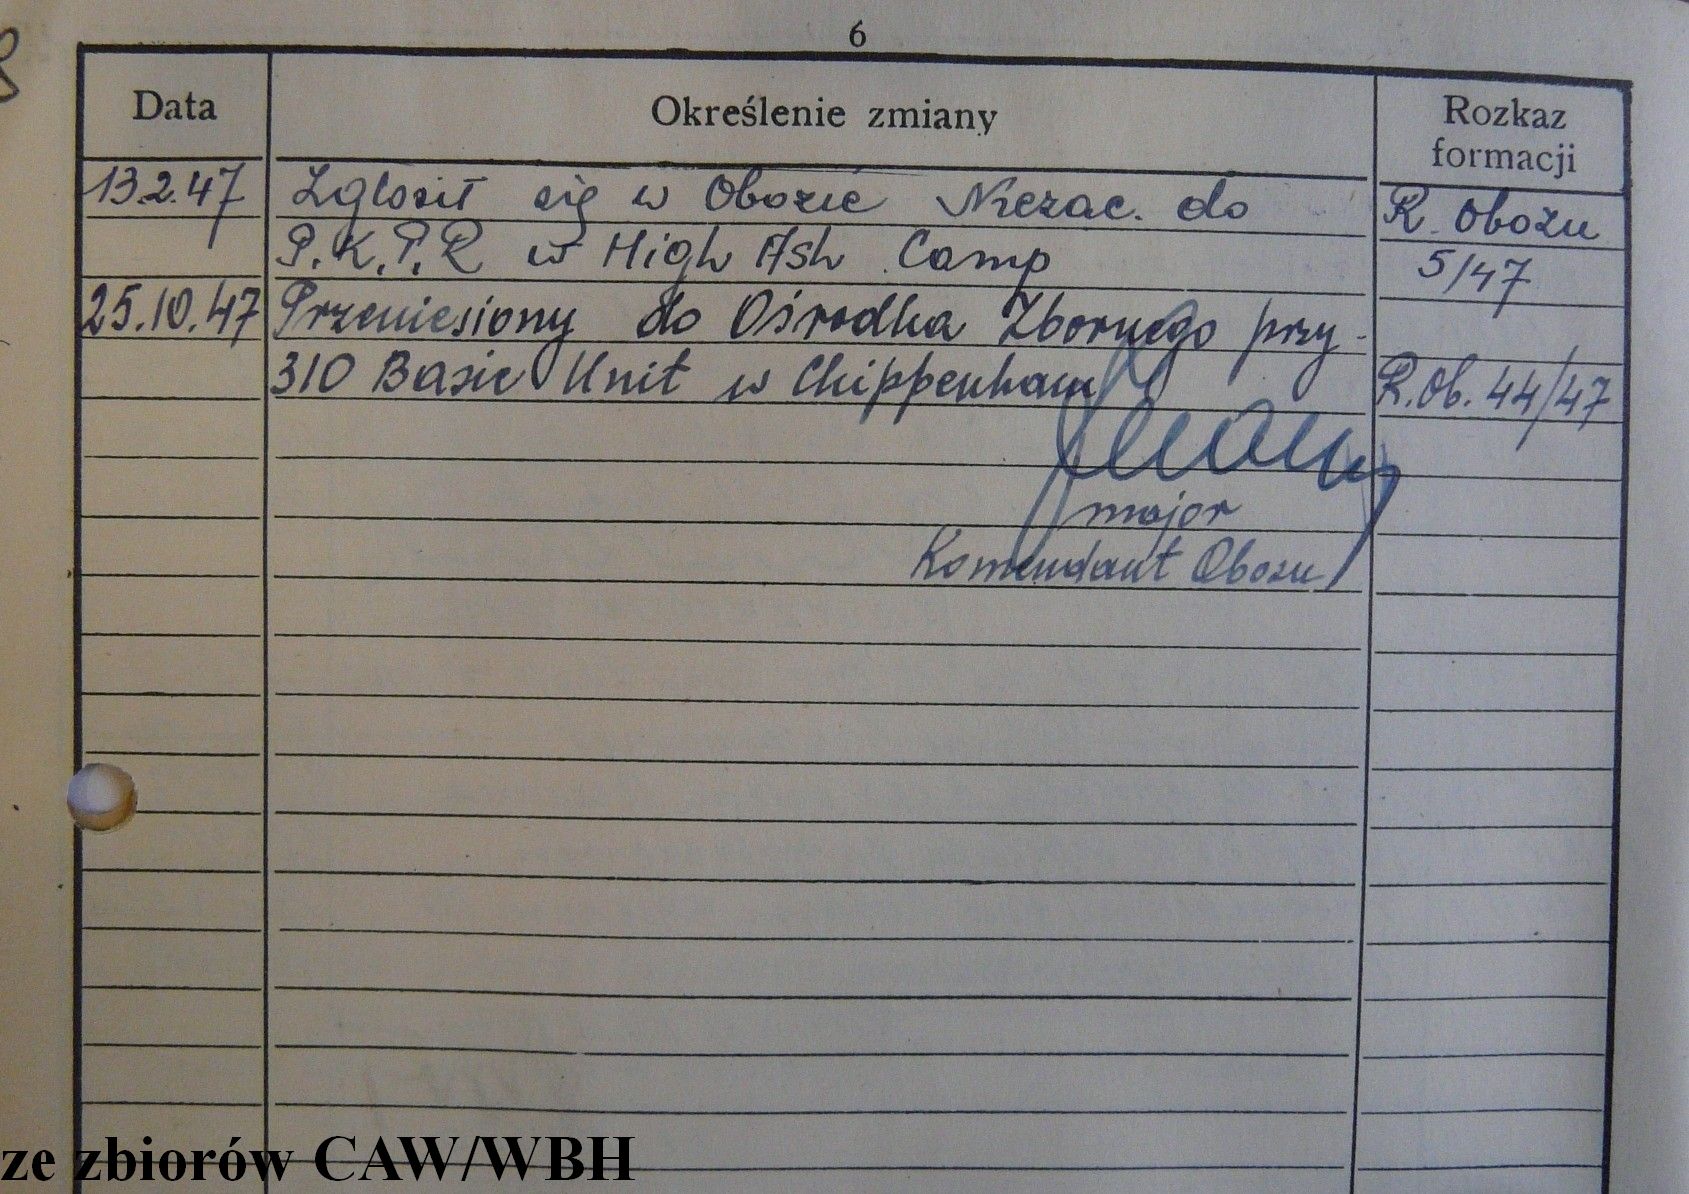 6
Data Określenie zmiany Rozkaz formacji
13.2.47 Zgłosił się w Obozie Niezac. do R. Obozu
P.K.P.R w High Ash Camp 5/47
25.10.47 Przeniesiony do Ośrodka Zbornego przy
310 Basic Unit w Chippenham R.Ob. 44/47
major
Komendant Obozu
ze zbiorów CAW/WBH